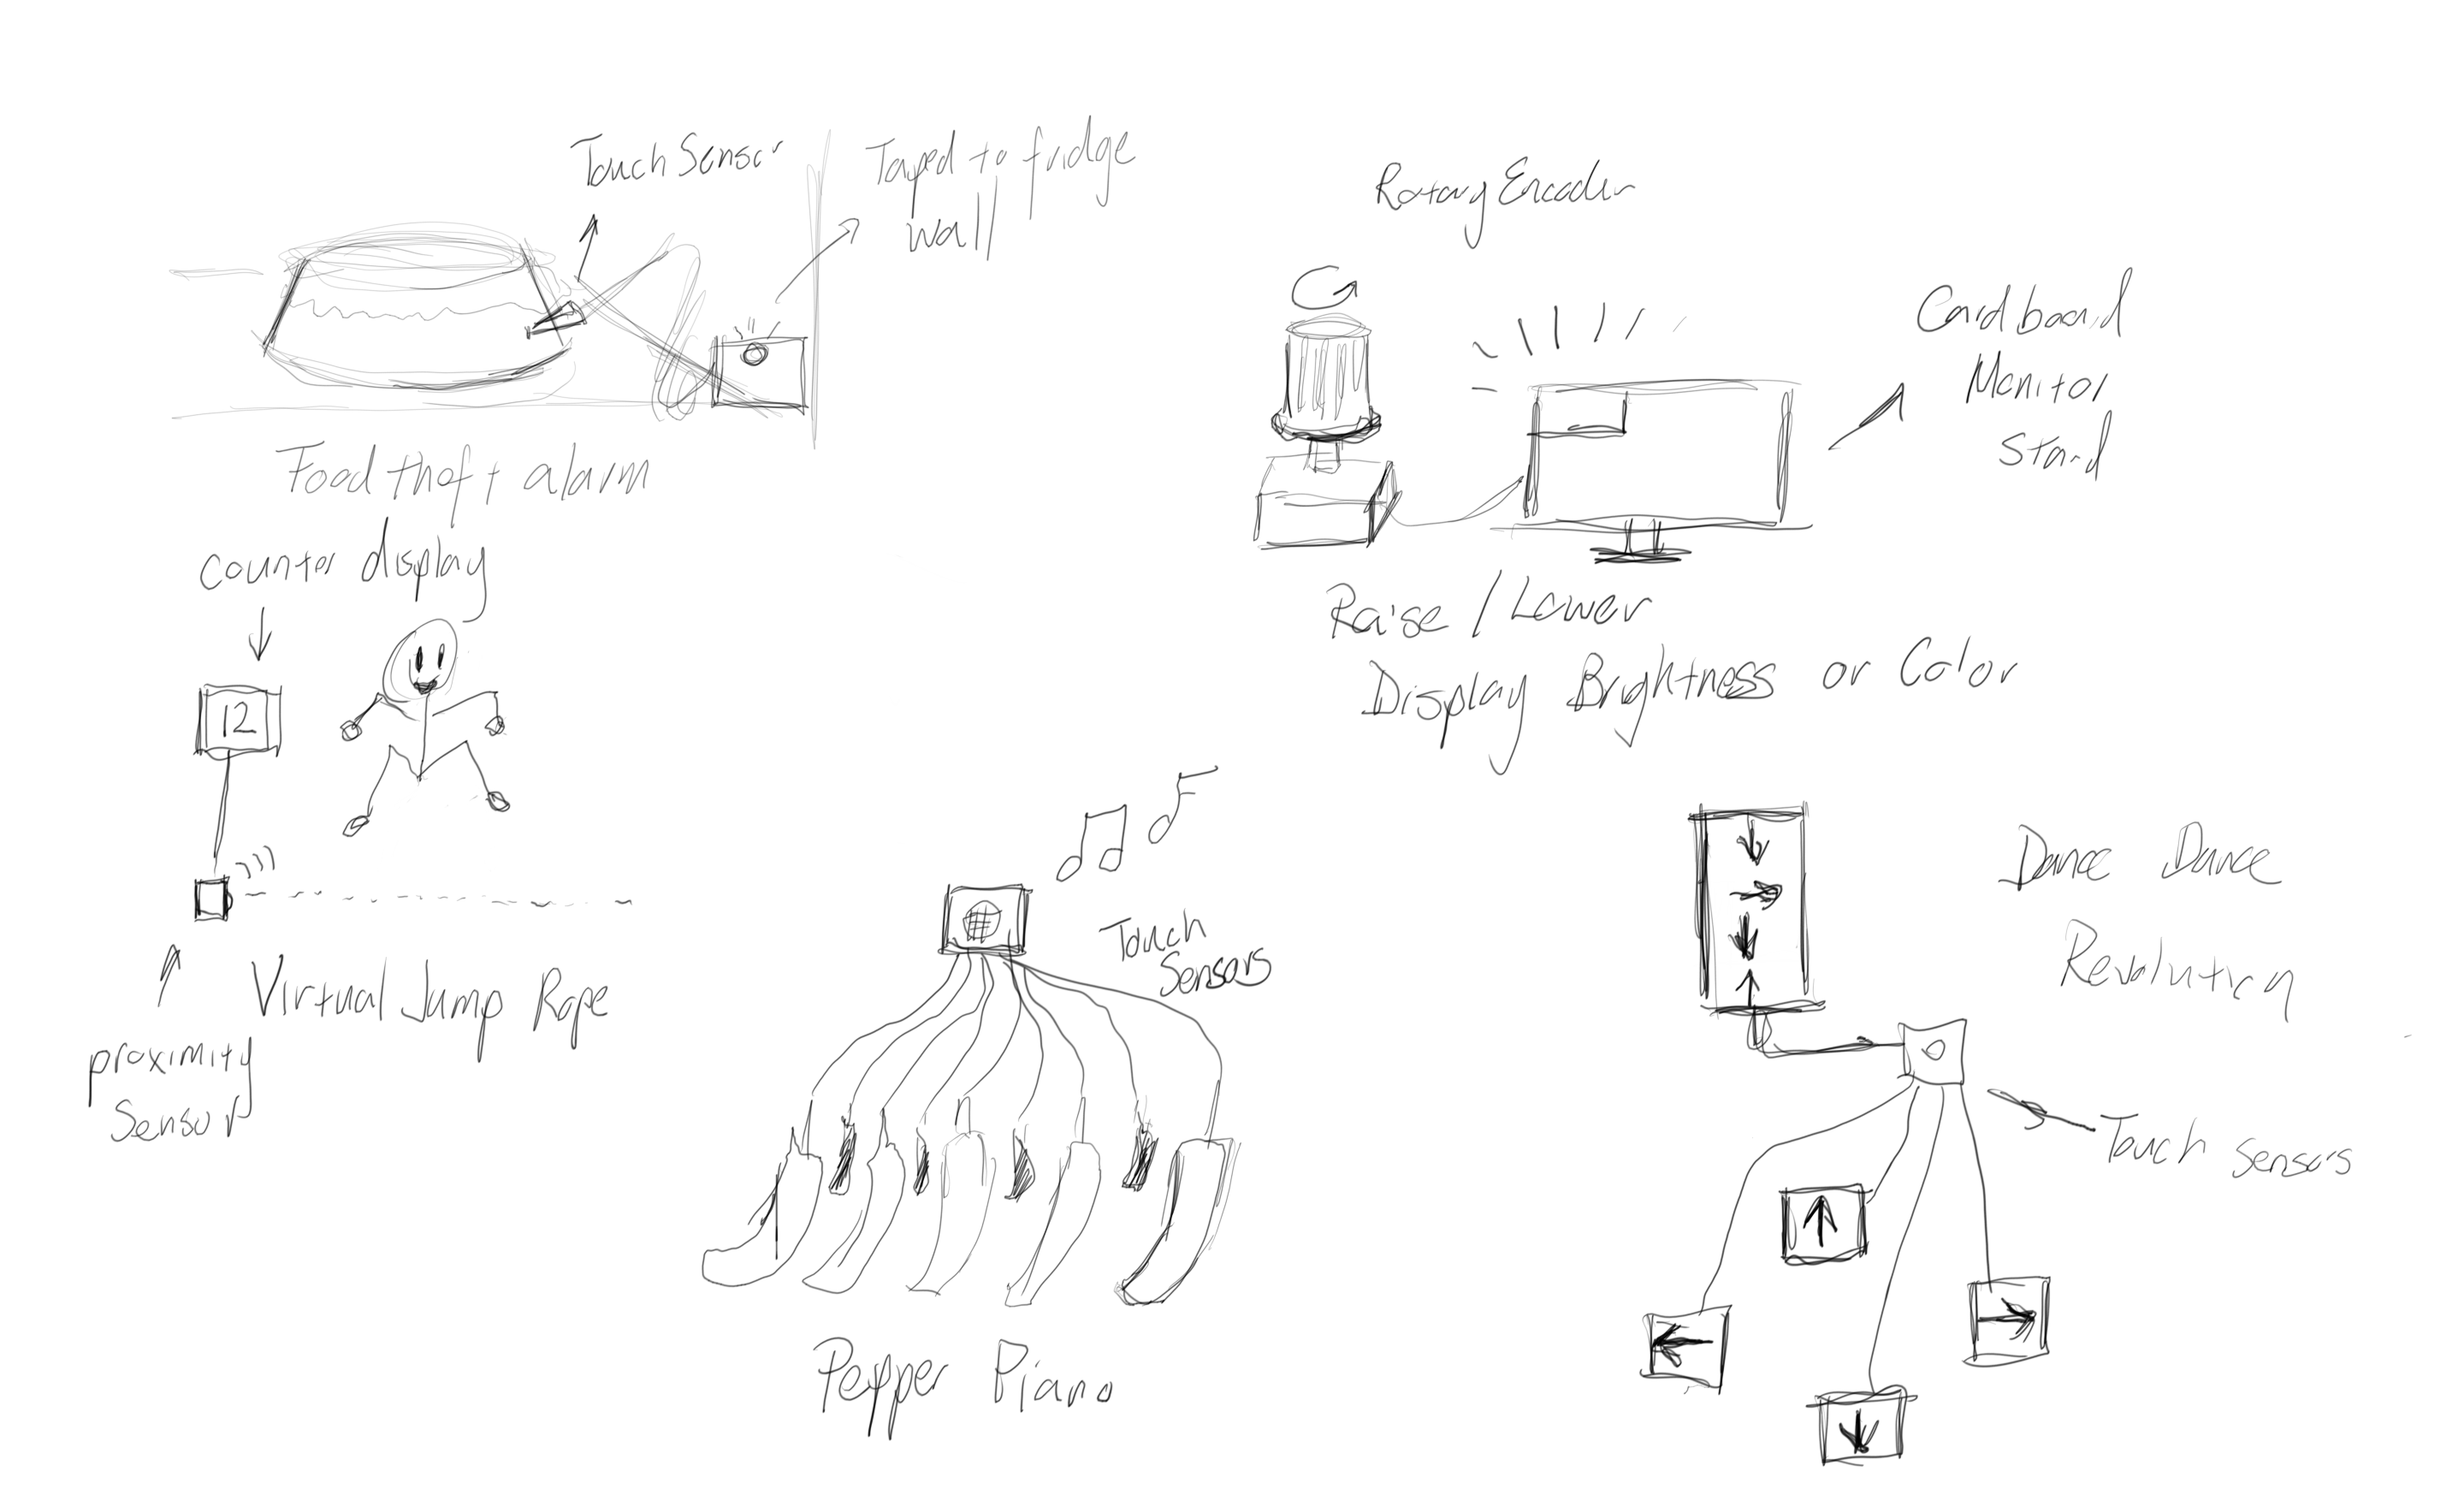 Touch Sensor
Taped to fridge
wall
Food theft alarm
Rotary Encoder
Cardboard
Monitor
Stand
Raise / Lower
Display Brightness or Color
counter display
12
Virtual Jump Rope
proximity
Sensor
Touch
Sensors
Pepper Piano
Dance Dance
Revolution
Touch Sensors